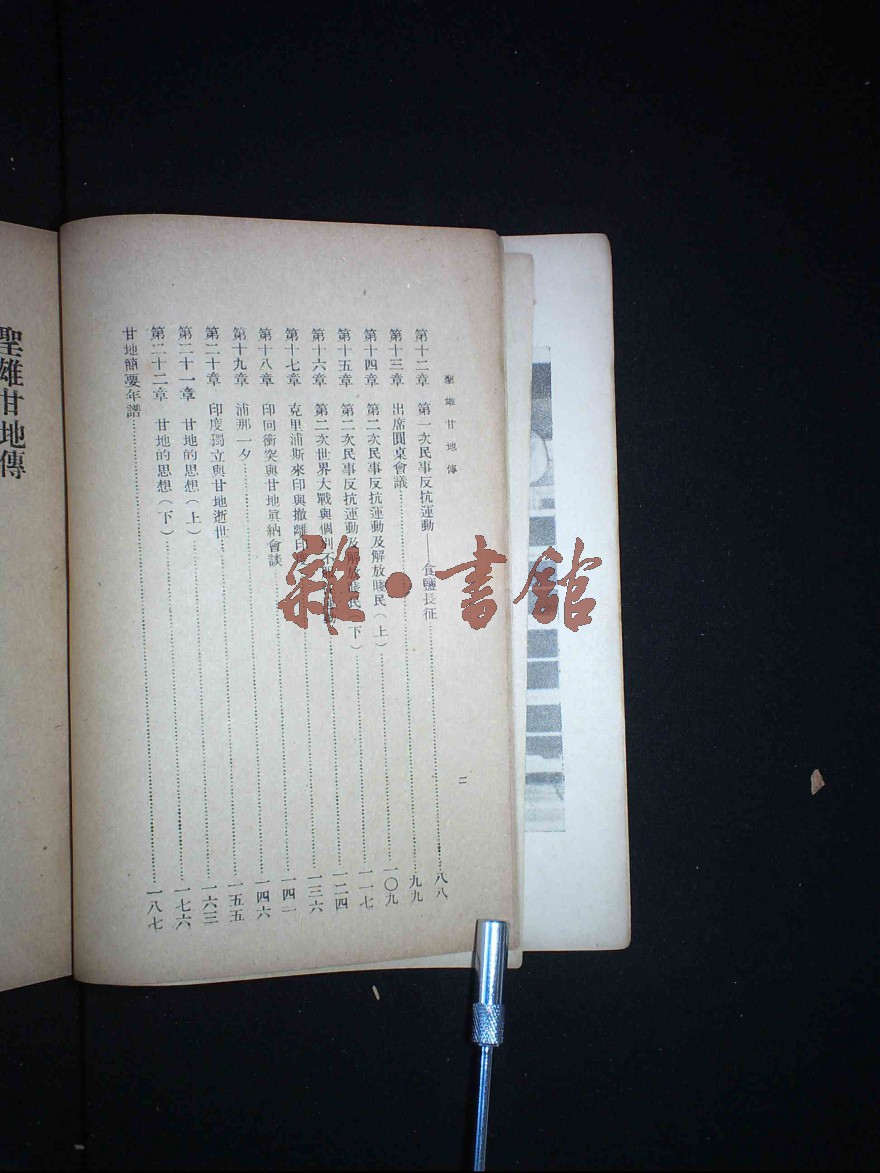 聖雄甘地傳
二
第十二章 第一次民事反抗運動——食鹽長征……八八
第十三章 出席圓桌會議……九九
第十四章 第二次民事反抗運動及解放賤民(上)……一〇九
第十五章 第二次民事反抗運動及解放賤民(下)……一一七
第十六章 第二次世界大戰與個別不……一二四
第十七章 克里浦斯來印與撤離印……一三六
第十八章 印回衝突與甘地眞納會談……一四一
第十九章 浦那一夕……一四六
第二十章 印度獨立與甘地逝世……一五五
第二十一章 甘地的思想(上)……一六三
第二十二章 甘地的思想(下)……一七六
甘地簡要年譜……一八七
聖雄甘地傳
雜·書館